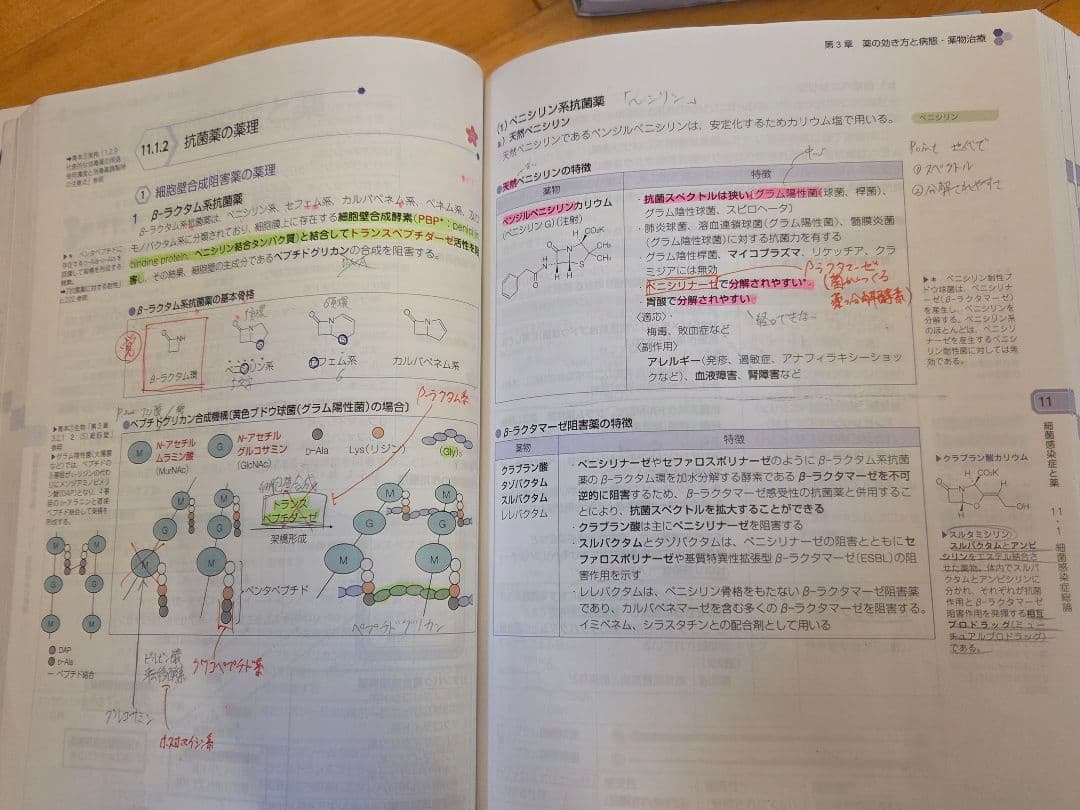 11.1.2 抗菌薬の薬理
① 細胞壁合成阻害薬の薬理
1 β-ラクタム系抗菌薬
β-ラクタム系抗菌薬は、ペニシリン系、セフェム系、カルバペネム系、ペネム系、及び
モノバクタム系に分類されており、細胞膜上に存在する細胞壁合成酵素(PBP
binding protein、ペニシリン結合タンパク質)と結合してトランスペプチダーゼ活性を
害し、その結果、細胞壁の主成分であるペプチドグリカンの合成を阻害する。
●β-ラクタム系抗菌薬の基本骨格
β-ラクタム環
ペニシリン系
セフェム系
カルバペネム系
6
β-ラクタム系
●ペプチドグリカン合成機構〔黄色ブドウ球菌(グラム陽性菌)の場合〕
M
N-アセチル
ムラミン酸
(MurNAc)
G
N-アセチル
グルコサミン
(GlcNAc)
D-Ala
Lys(リジン)
(Gly)₅
トランス
ペプチダーゼ
架橋形成
ペンタペプチド
ペプチドグリカン
DAP
D-Ala
ペプチド結合
ピルビン酸
転移酵素
グリコペプチド系
グルコサミン
ホスホマイシン系
第3章 薬の効き方と病態・薬物治療
(1) ペニシリン系抗菌薬 「〜シリン」
a) 天然ペニシリン
天然ペニシリンであるベンジルペニシリンは、安定化するためカリウム塩で用いる。
●天然ペニシリンの特徴
薬物
特徴
ベンジルペニシリンカリウム
(ペニシリンG)(注射)
・抗菌スペクトルは狭い〔グラム陽性菌(球菌、桿菌)、
グラム陰性球菌、スピロヘータ〕
・肺炎球菌、溶血連鎖球菌(グラム陽性菌)、髄膜炎菌
(グラム陰性球菌)に対する抗菌力を有する
・グラム陰性桿菌、マイコプラズマ、リケッチア、クラ
ミジアには無効
・ペニシリナーゼで分解されやすい*
・胃酸で分解されやすい
β-ラクタマーゼ
(菌がつくる
薬の分解酵素)
経口できない
〈適応〉
梅毒、敗血症など
〈副作用〉
アレルギー(発疹、過敏症、アナフィラキシーショッ
クなど)、血液障害、腎障害など
ペニシリン
Point
①スペクトル
②分解されやすさ
▶* ペニシリン耐性ブ
ドウ球菌は、ペニシリ
ナーゼ(β-ラクタマーゼ)
を産生し、ペニシリンを
分解する。ペニシリン系
のほとんどは、ペニシリ
ナーゼを産生するペニシ
リン耐性菌に対しては無
効である。
●β-ラクタマーゼ阻害薬の特徴
薬物
特徴
クラブラン酸
タゾバクタム
スルバクタム
レレバクタム
・ペニシリナーゼやセファロスポリナーゼのようにβ-ラクタム系抗菌
薬のβ-ラクタム環を加水分解する酵素であるβ-ラクタマーゼを不可
逆的に阻害するため、β-ラクタマーゼ感受性の抗菌薬と併用するこ
とにより、抗菌スペクトルを拡大することができる
・クラブラン酸は主にペニシリナーゼを阻害する
・スルバクタムとタゾバクタムは、ペニシリナーゼの阻害とともにセ
ファロスポリナーゼや基質特異性拡張型β-ラクタマーゼ(ESBL)の阻
害作用を示す
・レレバクタムは、ペニシリン骨格をもたないβ-ラクタマーゼ阻害薬
であり、カルバペネマーゼを含む多くのβ-ラクタマーゼを阻害する。
イミペネム、シラスタチンとの配合剤として用いる
▶クラブラン酸カリウム
▶スルタミシリン
スルバクタムとアンピ
シリンをエステル結合さ
せた薬物。体内でスルバ
クタムとアンピシリンに
分かれ、それぞれが抗菌
作用とβ-ラクタマーゼ
阻害作用を発揮する相互
プロドラッグ(ミュー
チュアルプロドラッグ)
である。
11
細菌感染症と薬
11・1 細菌感染症総論